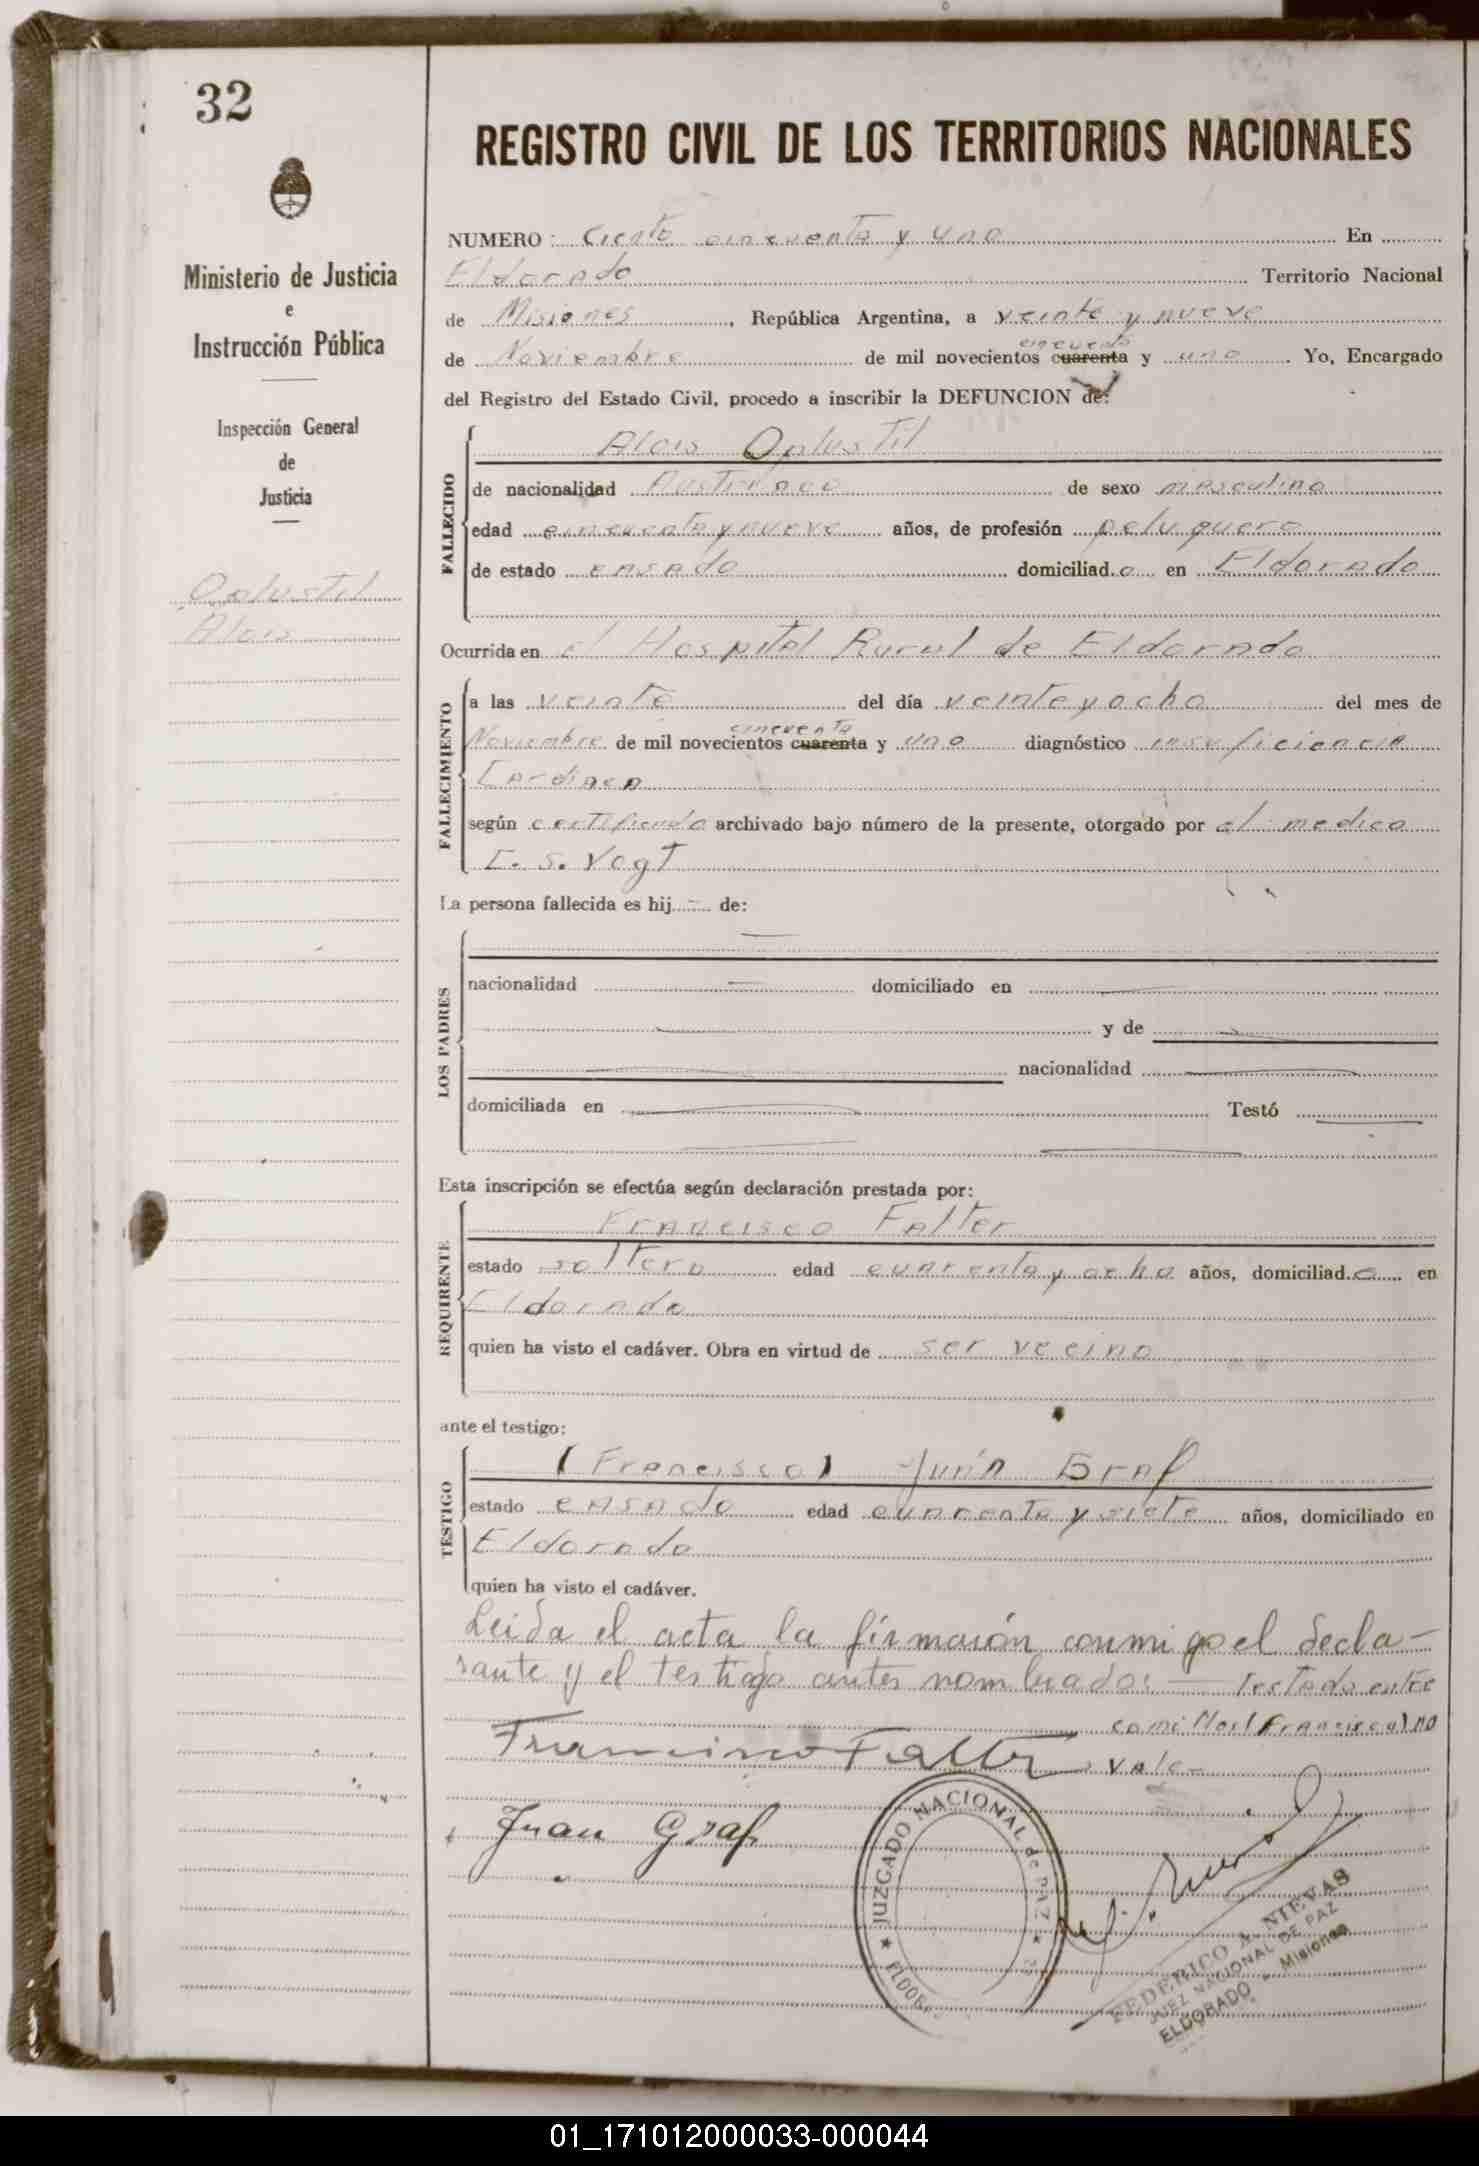 32
Ministerio de Justicia
e
Instrucción Pública
Inspección General
de
Justicia
Oplustil
Alois
REGISTRO CIVIL DE LOS TERRITORIOS NACIONALES
NUMERO: Ciento cincuenta y uno En
Eldorado Territorio Nacional
de Misiones, República Argentina, a veinte y nueve
cincuenta
de Noviembre de mil novecientos cuarenta y uno. Yo, Encargado
del Registro del Estado Civil, procedo a inscribir la DEFUNCION de:
FALLECIDO
Alois Oplustil
de nacionalidad Austriaco de sexo masculino
edad cincuenta y nueve años, de profesión peluquero
de estado casado domiciliado en Eldorado
Ocurrida en el Hospital Rural de Eldorado
FALLECIMIENTO
a las veinte del día veinte y ocho del mes de
cincuenta
Noviembre de mil novecientos cuarenta y uno diagnóstico insuficiencia
Cardiaca
según certificado archivado bajo número de la presente, otorgado por el medico
C. S. Vogt
La persona fallecida es hij - de:
LOS PADRES
nacionalidad domiciliado en
y de
nacionalidad
domiciliada en Testó
Esta inscripción se efectúa según declaración prestada por:
REQUIRENTE
Francisco Falter
estado soltero edad cuarenta y ocho años, domiciliado en
Eldorado
quien ha visto el cadáver. Obra en virtud de ser vecino
ante el testigo:
TESTIGO
(Francisco) Juan Graf
estado casado edad cuarenta y siete años, domiciliado en
Eldorado
quien ha visto el cadáver.
Leida el acta la firmaron conmigo el decla-
rante y el testigo antes nombrado: — Testado entre
comillas (Francisco) no
vale-
Francisco Falter
Juan Graf
★ JUZGADO NACIONAL de PAZ ★
FEDERICO A. NIEVAS
JUEZ NACIONAL DE PAZ
ELDORADO - Misiones
01_171012000033-000044